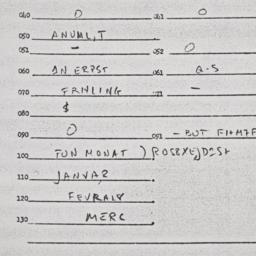 040 0 063 0
050 ANUML,T
051 - 052 0
060 AN ERPST 061 Q-S
070 FRNLING 071 -
080 $
090 0 091 - BUT
100 FUN MONAT )
110 JANVAR
120 FEVRALY
130 MERC